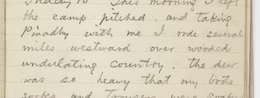 This morning I left
the camp pitched, and taking
with me I rode several
miles westward over wooded
undulating country, the dew
was so heavy that my boots
socks and trousers were